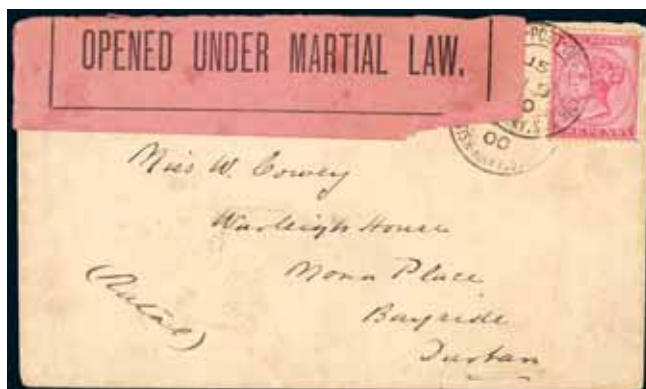 OPENED UNDER MARTIAL LAW.
PENNY
00
Miss W. Cowey
Warleigh House
Mona Place
Bayside
Durban
(Natal)